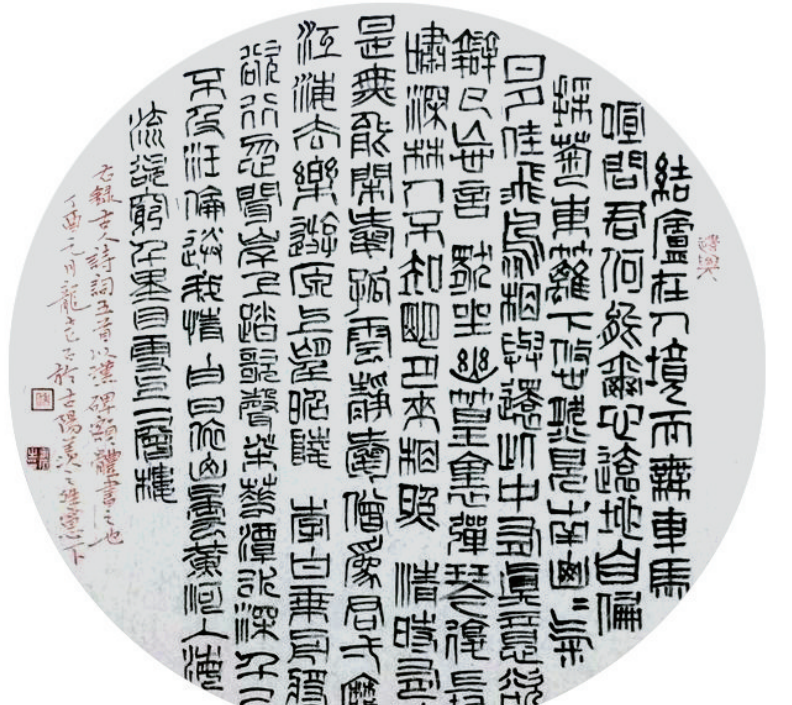 結廬在人境而無車馬
喧問君何能爾心遠地自偏
採菊東籬下悠然見南山山氣
日夕佳飛鳥相與還此中有真意欲
辯已忘言 獨坐幽篁裏彈琴復長
嘯深林人不知明月來相照 清時有
是無能閒愛孤雲靜愛僧
江海去樂遊原上望昭陵 李白乘舟將
欲行忽聞岸上踏歌聲桃花潭水深千尺
不及汪倫送我情 白日依山盡黃河入海
流欲窮千里目更上一層樓
右錄古人詩詞五首以漢碑額體書之也
丁酉元月龍於古陽羨